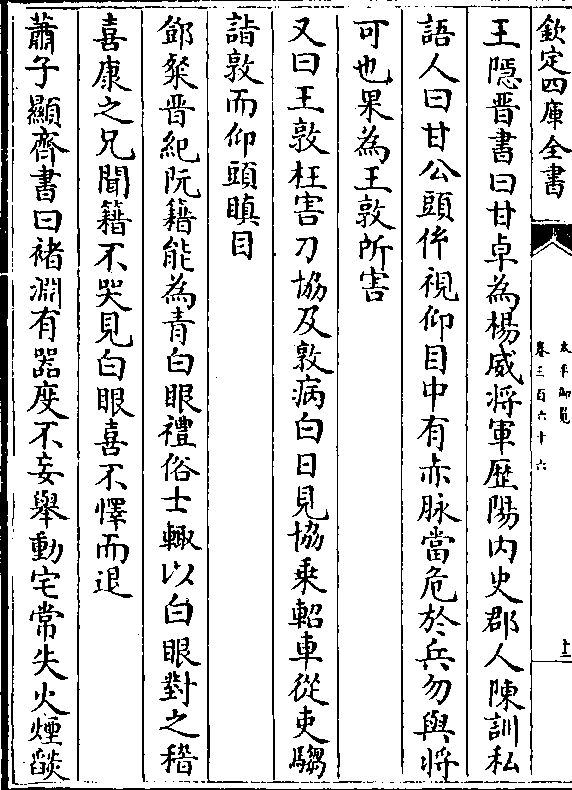 欽定四庫全書
太平御覽
卷三百六十六
十二
王隠晋書曰甘卓為楊威將軍歴陽内史郡人陳訓私
語人曰甘公頭仰視仰目中有赤脉當危於兵勿與將
可也果為王敦所害
又曰王敦枉害刀協及敦病白日見協乗軺車從吏騶
詣敦而仰頭瞋目
鄧粲晋紀阮籍能為青白眼禮俗士輙以白眼對之稽
喜康之兄聞籍不哭見白眼喜不懌而退
蕭子顯齊書曰禇淵有器度不妄舉動宅常失火煙燄